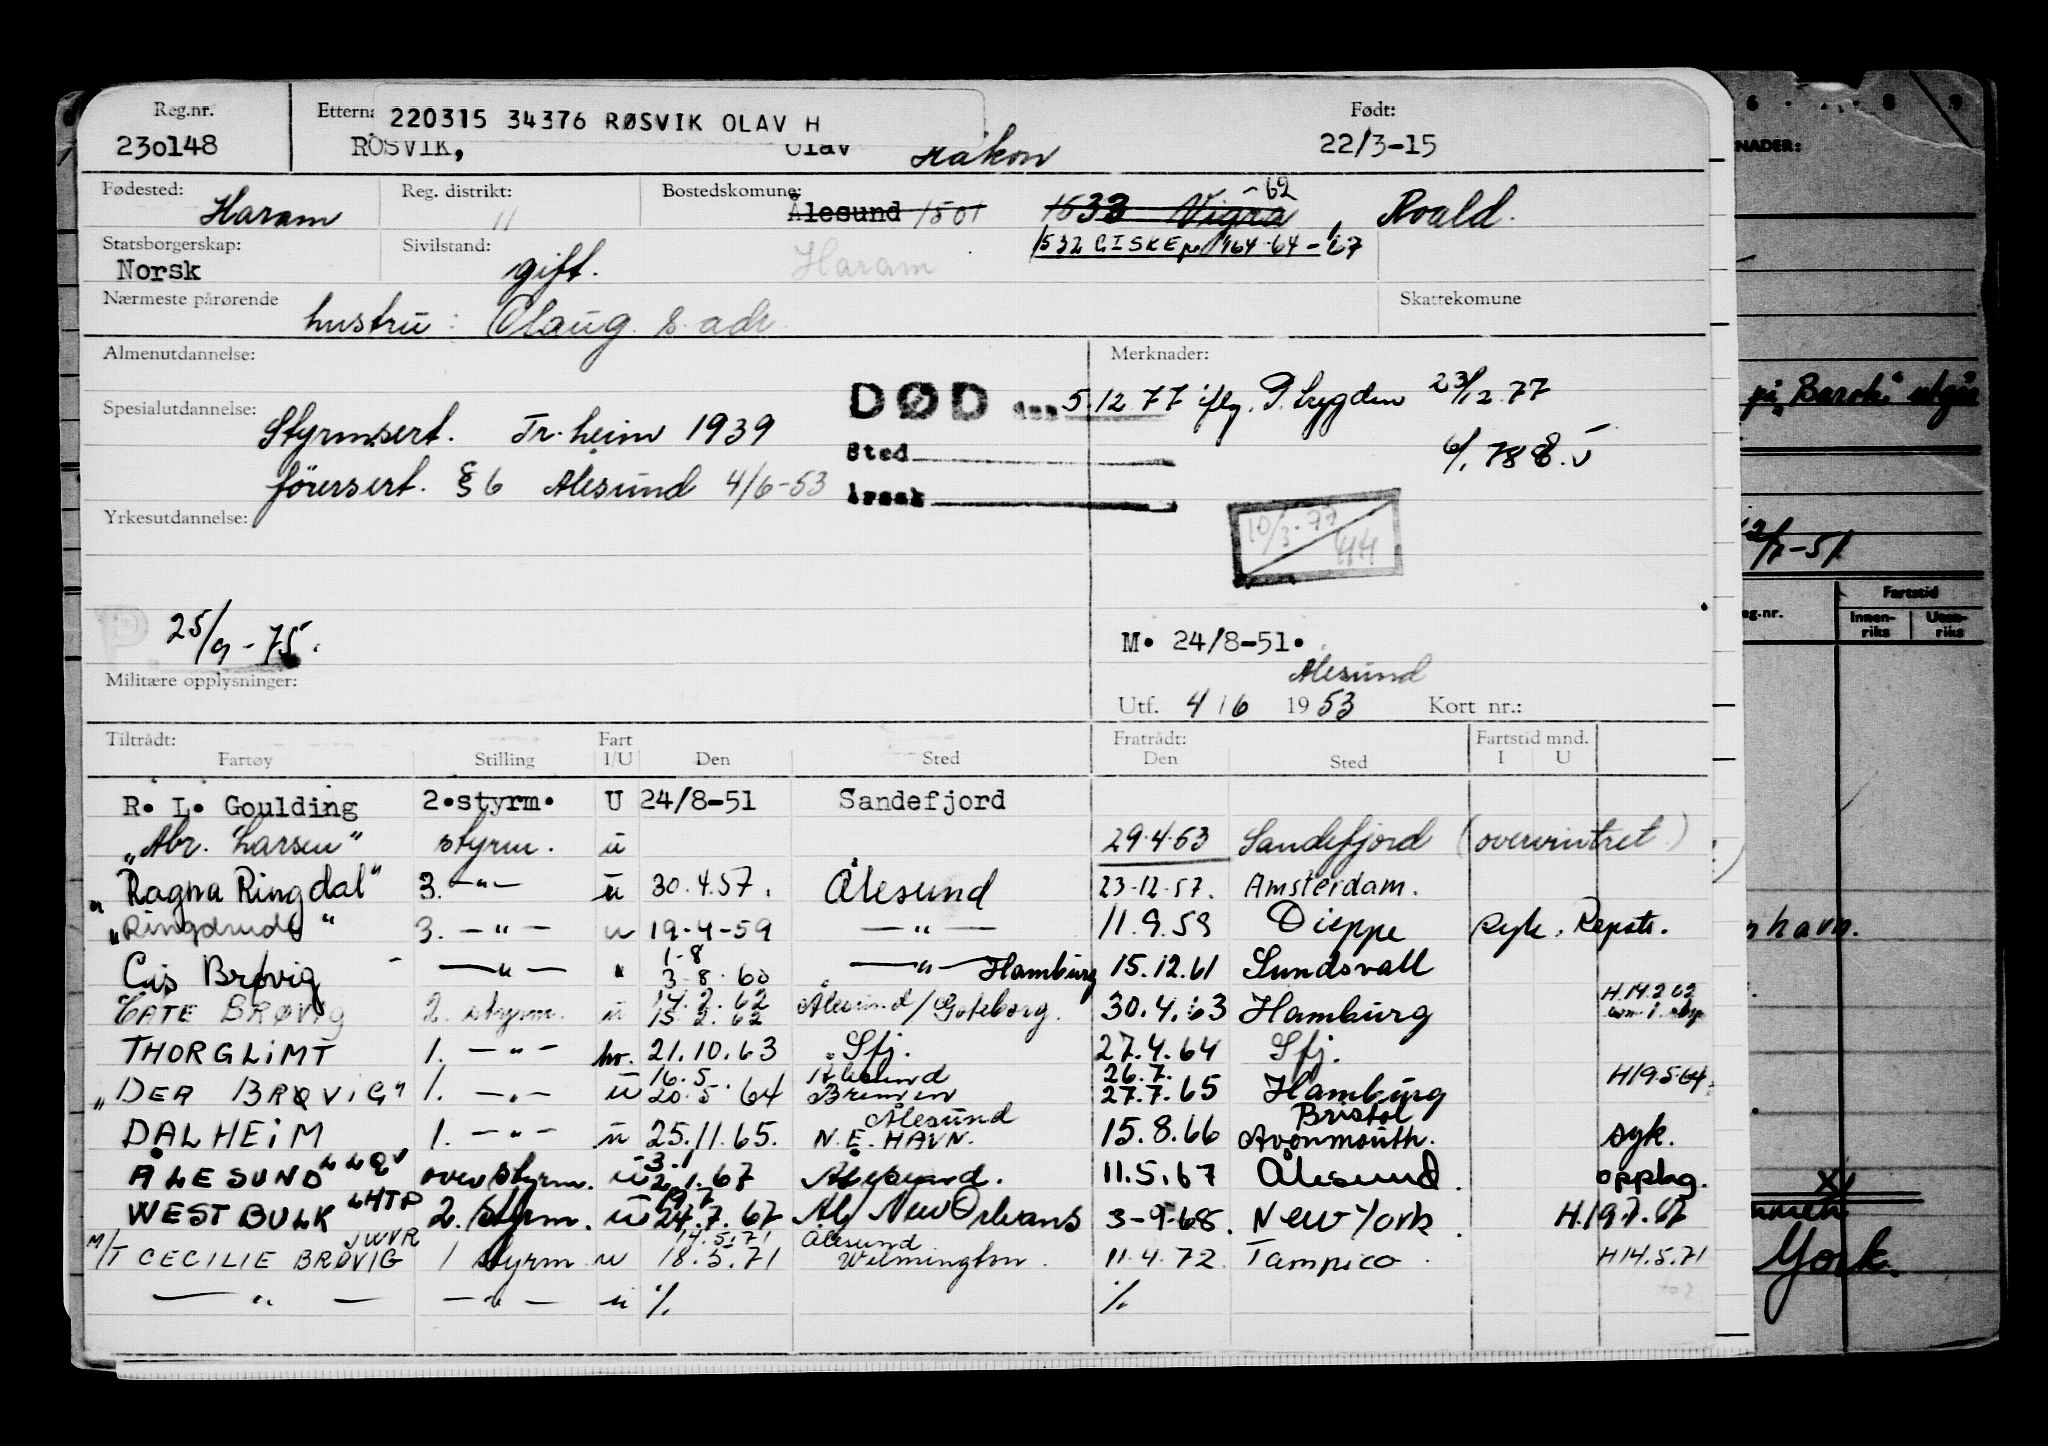 Reg.nr. Ettern: 220315 34376 RØSVIK OLAV H Født:
230148 RØSVIK, Olav Håkon 22/3-15
Fødested: Reg. distrikt: Bostedskommune: -62
Haram 11 Ålesund 1501 1533 Vigra Roald.
Statsborgerskap: Sivilstand: 1532 GISKE
Norsk gift. Haram
Nærmeste pårørende Skattekomune
hustru: Olaug s. adr.
Almenutdannelse: Merknader:
DØD den 5.12.77 iflg. P. trygden 23/12.77
Spesialutdannelse:
Styrm.sert. Tr.heim 1939 Sted
førersert. § 6 Ålesund 4/6-53 Årsak
Yrkesutdannelse:
10/3-77
25/9-75.
M. 24/8-51.
Militære opplysninger: Ålesund
Utf. 4/6 1953 Kort nr.:
Tiltrådt: Fart Fratrådt: Fartstid mnd.
Fartøy Stilling I/U Den Sted Den Sted I U
R. L. Goulding 2.styrm. U 24/8-51 Sandefjord
"Abr. Larsen" styrm. u 29.4.53 Sandefjord (overvintret)
"Ragna Ringdal" 3. -"- u 30.4.57. Ålesund 23-12-57. Amsterdam.
"Ringdrude" 3. -"- u 19-4-59 -"- 11.9.59 Dieppe syk. Repatr.
1-8
Cis Brøvig -"- " 3-8-60 -"- Hamburg 15.12.61 Sundsvall
14.2.62 H.14.2.62
CATE BRØVIG 2. styrm. u 15.2.62 Ålesund/Göteborg. 30.4.63 Hamburg
THORGLIMT 1. -"- hv. 21.10.63 Sfj. 27.4.64 Sfj.
16.5. Ålesund 26.7.
"DEA BRØVIG" 1. -"- u 20.5.64 Bremen 27.7.65 Hamburg H19.5.64
Ålesund Bristol
DALHEIM 1. -"- u 25.11.65. N.E. HAVN. 15.8.66 Avonmouth. syk.
3.1
ÅLESUND LLQV overstyrm. u 2.1.67 Ålesund. 11.5.67 Ålesund. opplag.
19.7
WEST BULK LHTP 2. styrm. u 24.7.67 Ål/New Orleans 3-9-68. New York. H.19.7.67
JWVR 14.5.71 Ålesund
M/T CECILIE BRØVIG 1 styrm u 18.5.71 Wilmington. 11.4.72 Tampico. H14.5.71
-"- -"- u % %
6 8 9
NADER:
på "Barok" utgår
2/7-51
eg.nr. Fartstid
Innen-riks Uten-riks
nhavn.
York.